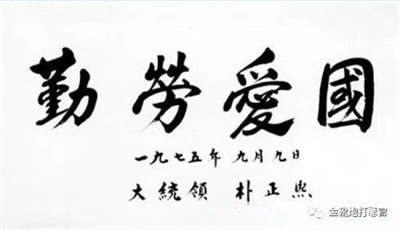 勤勞愛國
一九七五年 九月九日
大統領 朴正熙
金靴炮打慈宫